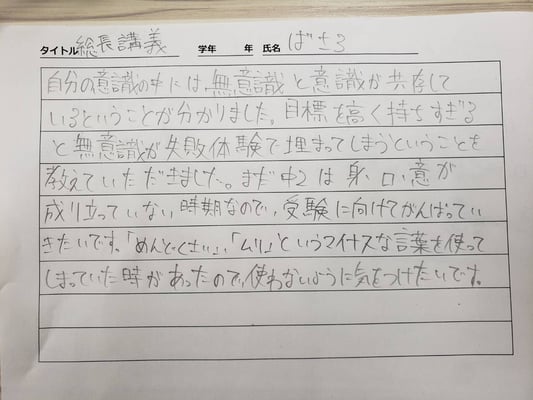 タイトル 総長講義 学年 年 氏名 ばさろ
自分の意識の中には無意識と意識が共存して
いるということが分かりました。目標を高く持ちすぎる
と無意識が失敗体験で埋まってしまうということを
教えていただきました。まだ中2は身、口、意が
成り立っていない時期なので、受験に向けてがんばってい
きたいです。「めんどくさい」、「ムリ」というマイナスな言葉を使って
しまっていた時があったので、使わないように気をつけたいです。